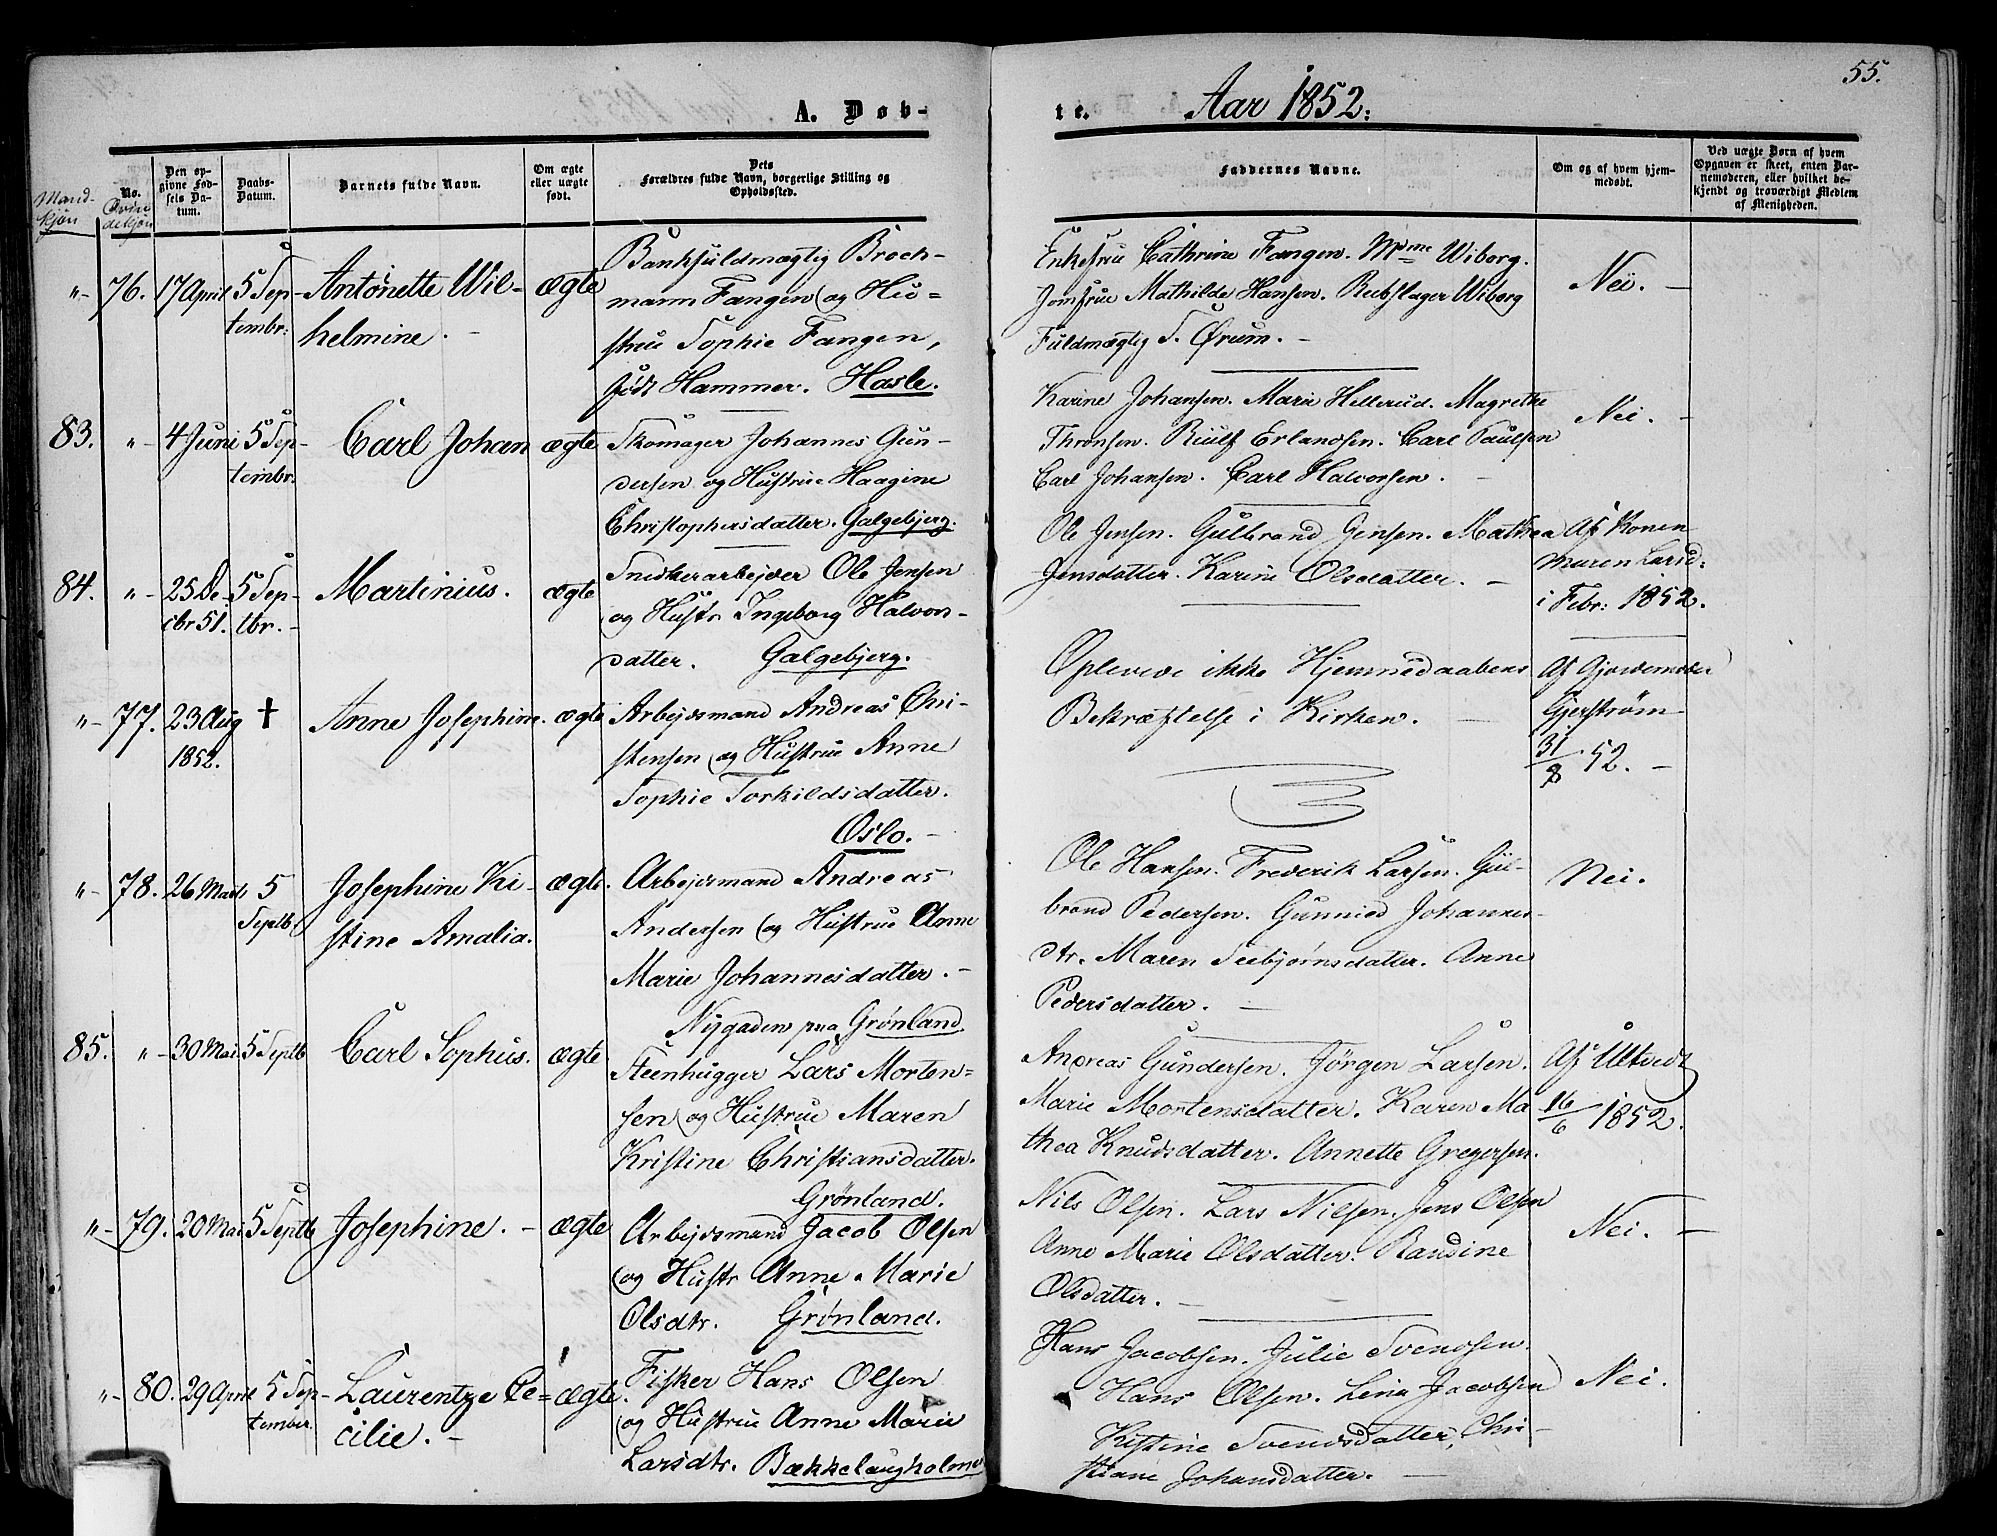 A. Døb-
te.
Aar 1852.
55.
Mand-
kjøn
No.
Qvin
dekjøn
Den op-
givne Fød-
sels Da-
tum.
Daabs-
Datum.
Barnets fulde Navn.
Om ægte
eller uægte
født.
Dets
Forældres fulde Navn, borgerlige Stilling og
Opholdssted.
Faddernes Navne.
Om og af hvem hjem-
medøbt.
Ved uægte Børn af hvem
Opgaven er skeet, enten Bar-
nemoderen, eller hvilket be-
kjendt og troværdigt Medlem
af Menigheden.
"- 76. 17 April 5 Sep-
tembr:
Antonette Wil-
helmine.
ægte
Bankfuldmægtig Broch-
mann Fangen og Hu-
strue Sophie Fangen,
født Hammer. Hasle.
Enkefrue Cathrine Fangen. Mdme Wiborg.
Jomfrue Mathilde Hansen. Rebslager Wiborg
Fuldmægtig S. Ørum. -
Nei. -
83. "- 4 Juni 5 Sep-
tembr.
Carl Johan
ægte
Skomager Johannes Gun-
dersen og Hustrue Haagine
Christophersdatter. Galgebjerg.
Karine Johansen. Marie Hellerud. Magrethe
Thronsen. Erlandsen. Carl Paulsen
Carl Johansen. Carl Halvorsen.
Nei. -
84. "- 25 De-
cbr 51.
5 Sep-
tbr. -
Martinius.
ægte
Snedkerarbejder Ole Jensen
og Hustr. Ingeborg Halvors-
datter. Galgebjerg.
Ole Jensen. Gulbrand Jensen. Mathea
Jensdatter. Karine Olsdatter. -
Af Konen
Maren Larsd:
i Febr: 1852.
"- 77. 23 Aug
1852.
†
Anne Josephine.
ægte
Arbejdsmand Andreas Chri-
stensen og Hustrue Anne
Sophie Torkildsdatter.
Oslo. -
Oplevede ikke Hjemmedaabens
Bekræftelse i Kirken. -
Af Gjordemoder
Gjerstrøm
31/8 52. -
"- 78. 26 Marts 5
Septb
Josephine Ki-
stine Amalia.
ægte.
Arbejdsmand Andreas
Andersen og Hustrue Anne
Marie Johannesdatter. -
Nygaden paa Grønland.
Ole Hansen. Frederik Larsen. Gul-
brand Pedersen. Gunnied Johannes-
dtr. Maren Seebjørnsdatter. Anne
Pedersdatter. -
Nei.
85. "- 30 Mai 5 Septb
Carl Sophus.
ægte
Steenhugger Lars Morten-
sen og Hustrue Maren
Kristine Christiansdatter.
Grønland.
Andreas Gundersen. Jörgen Larsen.
Marie Mortensdatter. Karen Ma
thea Knudsdatter. Annette Gregersen.
Af Ultvedt
16/6 1852.
"- 79. 20 Mai 5 Septb
Josephine. -
ægte
Arbejdsmand Jacob Olsen
og Hustr Anne Marie
Olsdtr. Grønland.
Nils Olsen. Lars Nilsen. Jens Olsen
Anne Marie Olsdatter. Randine
Olsdatter. -
Nei. -
"- 80. 29 April 5 Sep-
tember.
Laurentze Ce-
cilie. -
ægte.
Fisker Hans Olsen
og Hustrue Anne Marie
Larsdtr. Bækkelaugholmen
Hans Jacobsen. Julie Svendsen.
Hans Olsen. Lena Jacobsen
Kistine Svendsdatter, Chri-
stiane Johansdatter. -
Nei.